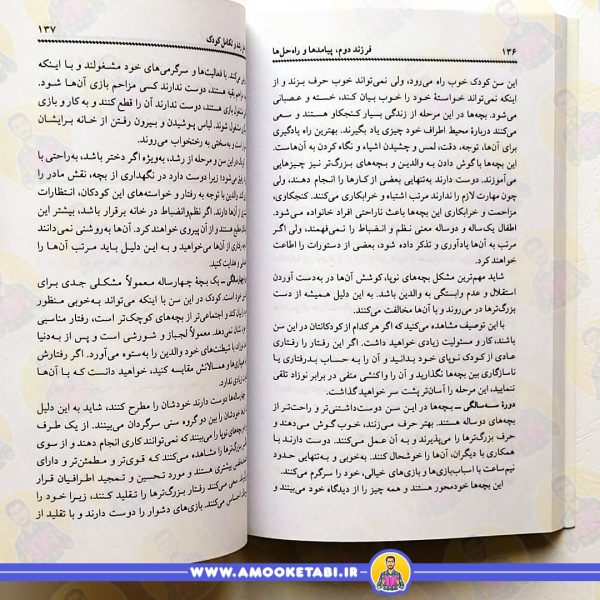 ۱۳۶
فرزند دوم، پیامدها و راه‌حل‌ها
این سن کودک خوب راه می‌رود، ولی نمی‌تواند خوب حرف بزند و از
اینکه نمی‌تواند خواستهٔ خود را خوب بیان کند، خسته و عصبانی
می‌شود. بچه‌ها در این مرحله از زندگی بسیار کنجکاو هستند و سعی
می‌کنند دربارهٔ محیط اطراف خود چیزی یاد بگیرند. بهترین راه یادگیری
برای آن‌ها، توجه، دقت، لمس و چشیدن اشیاء و نگاه کردن به آن‌هاست.
این بچه‌ها با گوش دادن به والدین و بچه‌های بزرگ‌تر نیز چیزهایی
می‌آموزند. دوست دارند به‌تنهایی بعضی از کارها را انجام دهند، ولی
چون مهارت لازم را ندارند مرتب اشتباه و خرابکاری می‌کنند. کنجکاوی،
مزاحمت و خرابکاری این بچه‌ها باعث ناراحتی افراد خانواده می‌شود.
اطفال یک‌ساله و دوساله معنی نظم و انضباط را نمی‌فهمند، ولی اگر
مرتب به آن‌ها یادآوری و تذکر داده شود، بعضی از دستورات را اطاعت
خواهند کرد.
شاید مهم‌ترین مشکل بچه‌های نوپا، کوشش آن‌ها در به‌دست آوردن
استقلال و عدم وابستگی به والدین باشد. به این دلیل همیشه از دست
بزرگ‌ترها در می‌روند و با آن‌ها مخالفت می‌کنند.
با این توصیف مشاهده می‌کنید که اگر هر کدام از کودکانتان در این سن
باشند، کار و مسئولیت زیادی خواهید داشت. اگر این رفتار را رفتاری
عادی از کودک نوپای خود بدانید و آن را به حساب بدرفتاری یا
ناسازگاری بین بچه‌ها نگذارید و آن را واکنشی منفی در برابر نوزاد تلقی
ننمایید، این مرحله را آسان‌تر پشت سر خواهید گذاشت.
دورهٔ سه‌سالگی ــ بچه‌ها در این سن دوست‌داشتنی‌تر و راحت‌تر از
بچه‌های دوساله هستند. بهتر حرف می‌زنند، خوب گوش می‌دهند و
حرف بزرگ‌ترها را می‌پذیرند و به آن عمل می‌کنند. دوست دارند با
همکاری با دیگران، آن‌ها را خوشحال کنند. به‌خوبی و به‌تنهایی حدود
نیم‌ساعت با اسباب‌بازی‌ها و بازی‌های خیالی، خود را سرگرم می‌کنند.
این بچه‌ها خودمحور هستند و همه چیز را از دیدگاه خود می‌بینند و
۱۳۷
رشد و تکامل کودک
می‌کنند. با فعالیت‌ها و سرگرمی‌های خود مشغولند و با اینکه
مزاحم بقیه هستند، دوست ندارند کسی مزاحم بازی آن‌ها شود.
مشغول بازی هستند، دوست ندارند آن را قطع کنند و به کار و بازی
مشغول شوند. لباس پوشیدن و بیرون رفتن از خانه برایشان
و به سختی به رختخواب می‌روند.
کودک این سن و مرحله از رشد، به‌ویژه اگر دختر باشد، به‌راحتی با
کنار می‌آید؛ زیرا دوست دارد در نگهداری از بچه، نقش مادر را
والدین با توجه به رفتار و خواسته‌های این کودکان، انتظارات
از آن‌ها دارند. اگر نظم‌وانضباط در خانه برقرار باشد، بیشتر این
هستند از آن پیروی خواهند کرد. آن‌ها به‌روشنی نمی‌دانند
رفتاری از آن‌ها می‌خواهید و به این دلیل باید مرتب آن‌ها را
و هدایت کنید.
چهارسالگی ــ یک بچهٔ چهارساله معمولاً مشکلی جدی برای
است. کودک در این سن با اینکه می‌تواند به‌خوبی منظور
کند و اجتماعی‌تر از بچه‌های کوچک‌تر است، رفتار مناسبی
نشان نمی‌دهد. معمولاً لجباز و شورشی است و پس از به‌دنیا
با شیطنت‌های خود والدین را به‌ستوه می‌آورد. اگر رفتارش
و همسالانش مقایسه کنید، خواهید دانست که با آن‌ها
زیادی ندارد.
چهارساله‌ها دوست دارند خودشان را مطرح کنند، شاید به این دلیل
خودشان را بین دو گروه سنی سرگردان می‌بینند. از یک طرف
بچه‌های نوپا را می‌بینند که نمی‌توانند کاری انجام دهند و از سوی
بزرگ‌ترها را مشاهده می‌کنند که قوی‌تر و مطمئن‌تر و دارای
بیشتری هستند و مورد تحسین و تمجید اطرافیان قرار
سعی می‌کنند رفتار بزرگ‌ترها را تقلید کنند، زیرا خود را
احساس می‌کنند. بازی‌های دشوار را دوست دارند و با تقلید
WWW.AMOOKETABI.IR